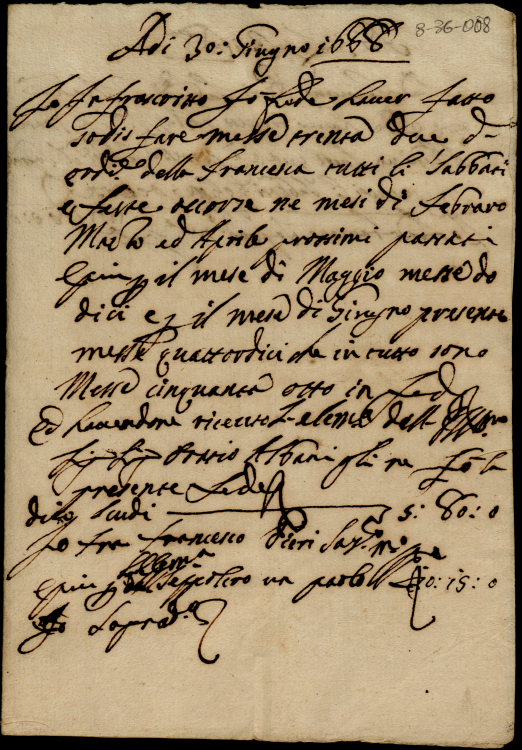 8-36-008
Adi 30: Giugno 1668
Io Infrascritto fo fede haver fatto
sodisfare messe trenta due d
ord.e della francesca tutti li Sabbati
e feste occorse ne mesi di febraro
Marzo ed Aprile prossimi passati
e più p il mese di Maggio messe do
dici e p il mese di Giugno presente
messe quattordici che in tutto sono
Messe cinquanta otto in fede
ed havendone ricevuto l'elemos dall
Sig. Orazio Albani gli ne fo la
presente fede
scudi 5: 80: 0
Io fra francesco Pieri
e più un paolo 0: 15: 0
Io soprad.o